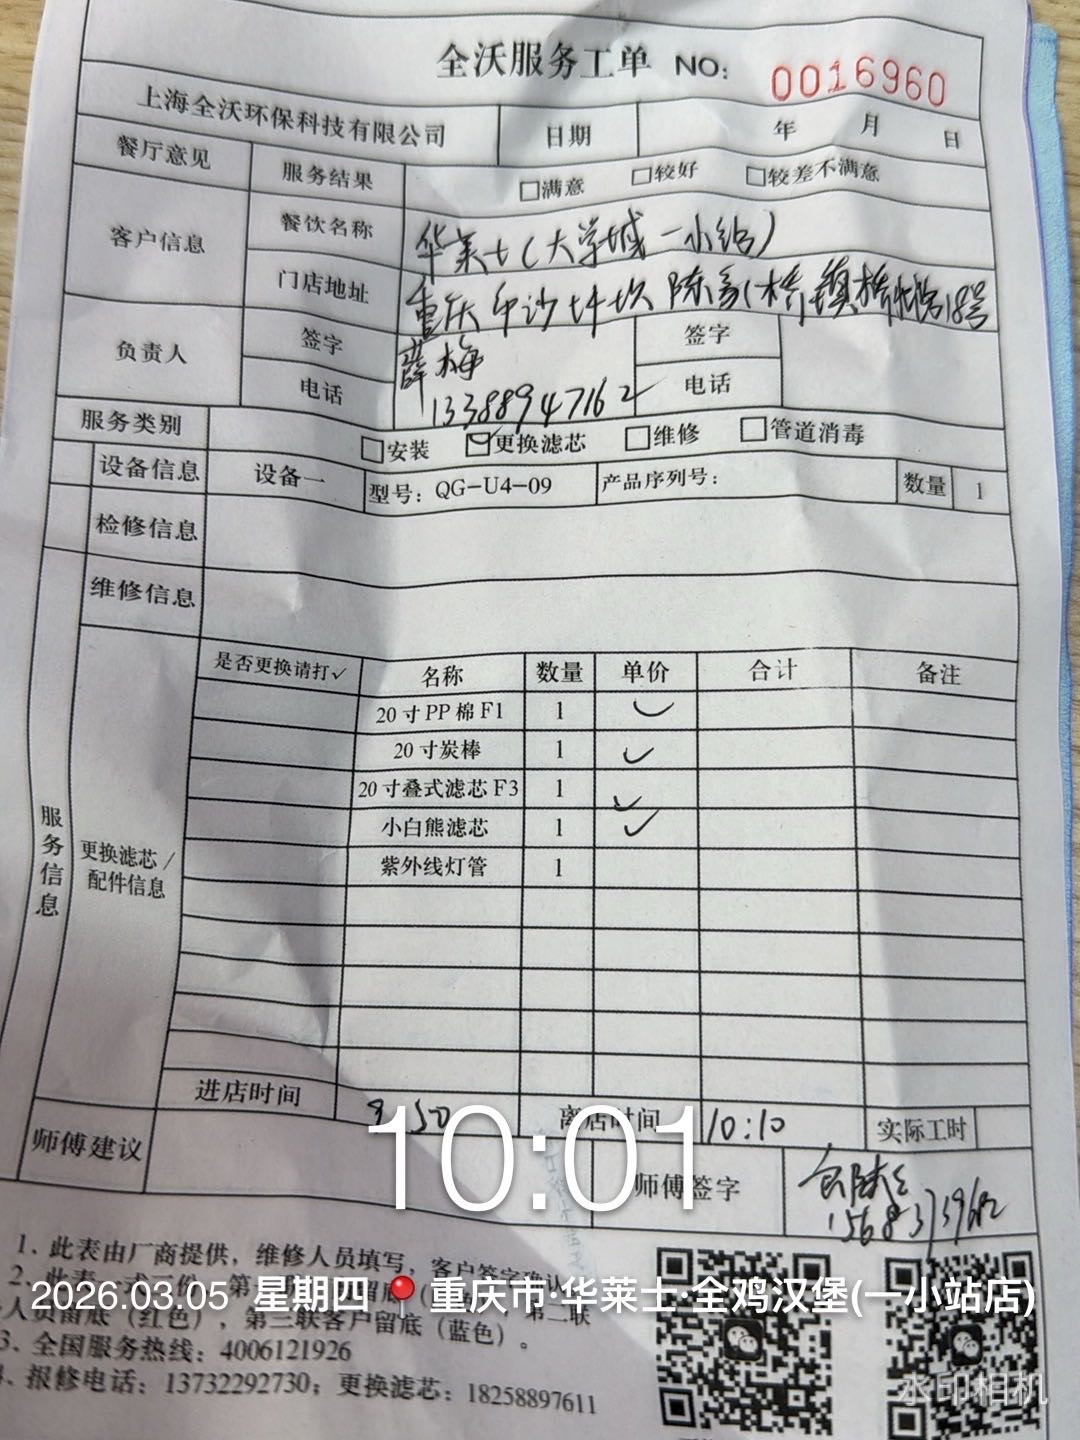 全沃服务工单 NO: 0016960
上海全沃环保科技有限公司 日期 年 月 日
餐厅意见 服务结果 □满意 □较好 □较差不满意
客户信息 餐饮名称 华莱士(大学城一小站)
门店地址 重庆市沙坪坝 陈家桥镇桥 18号
负责人 签字 薛梅 签字
电话 13388947162 电话
服务类别 □安装 ☑更换滤芯 □维修 □管道消毒
设备信息 设备一 型号: QG-U4-09 产品序列号: 数量 1
检修信息
维修信息
服务信息
更换滤芯/
配件信息
是否更换请打✓ 名称 数量 单价 合计 备注
20寸PP棉F1 1 ✓
20寸炭棒 1 ✓
20寸叠式滤芯F3 1 ✓
小白熊滤芯 1 ✓
紫外线灯管 1
进店时间 9:50 离店时间 10:10 实际工时
师傅建议 师傅签字
10:01
1. 此表由厂商提供，维修人员填写，客户签字确认
2. 此表一式三份，第一联 留底（ ，第二联
人员留底（红色），第三联客户留底（蓝色）。
2026.03.05 星期四 📍重庆市·华莱士·全鸡汉堡(一小站店)
3. 全国服务热线：4006121926
4. 报修电话：13732292730；更换滤芯：18258897611
水印相机